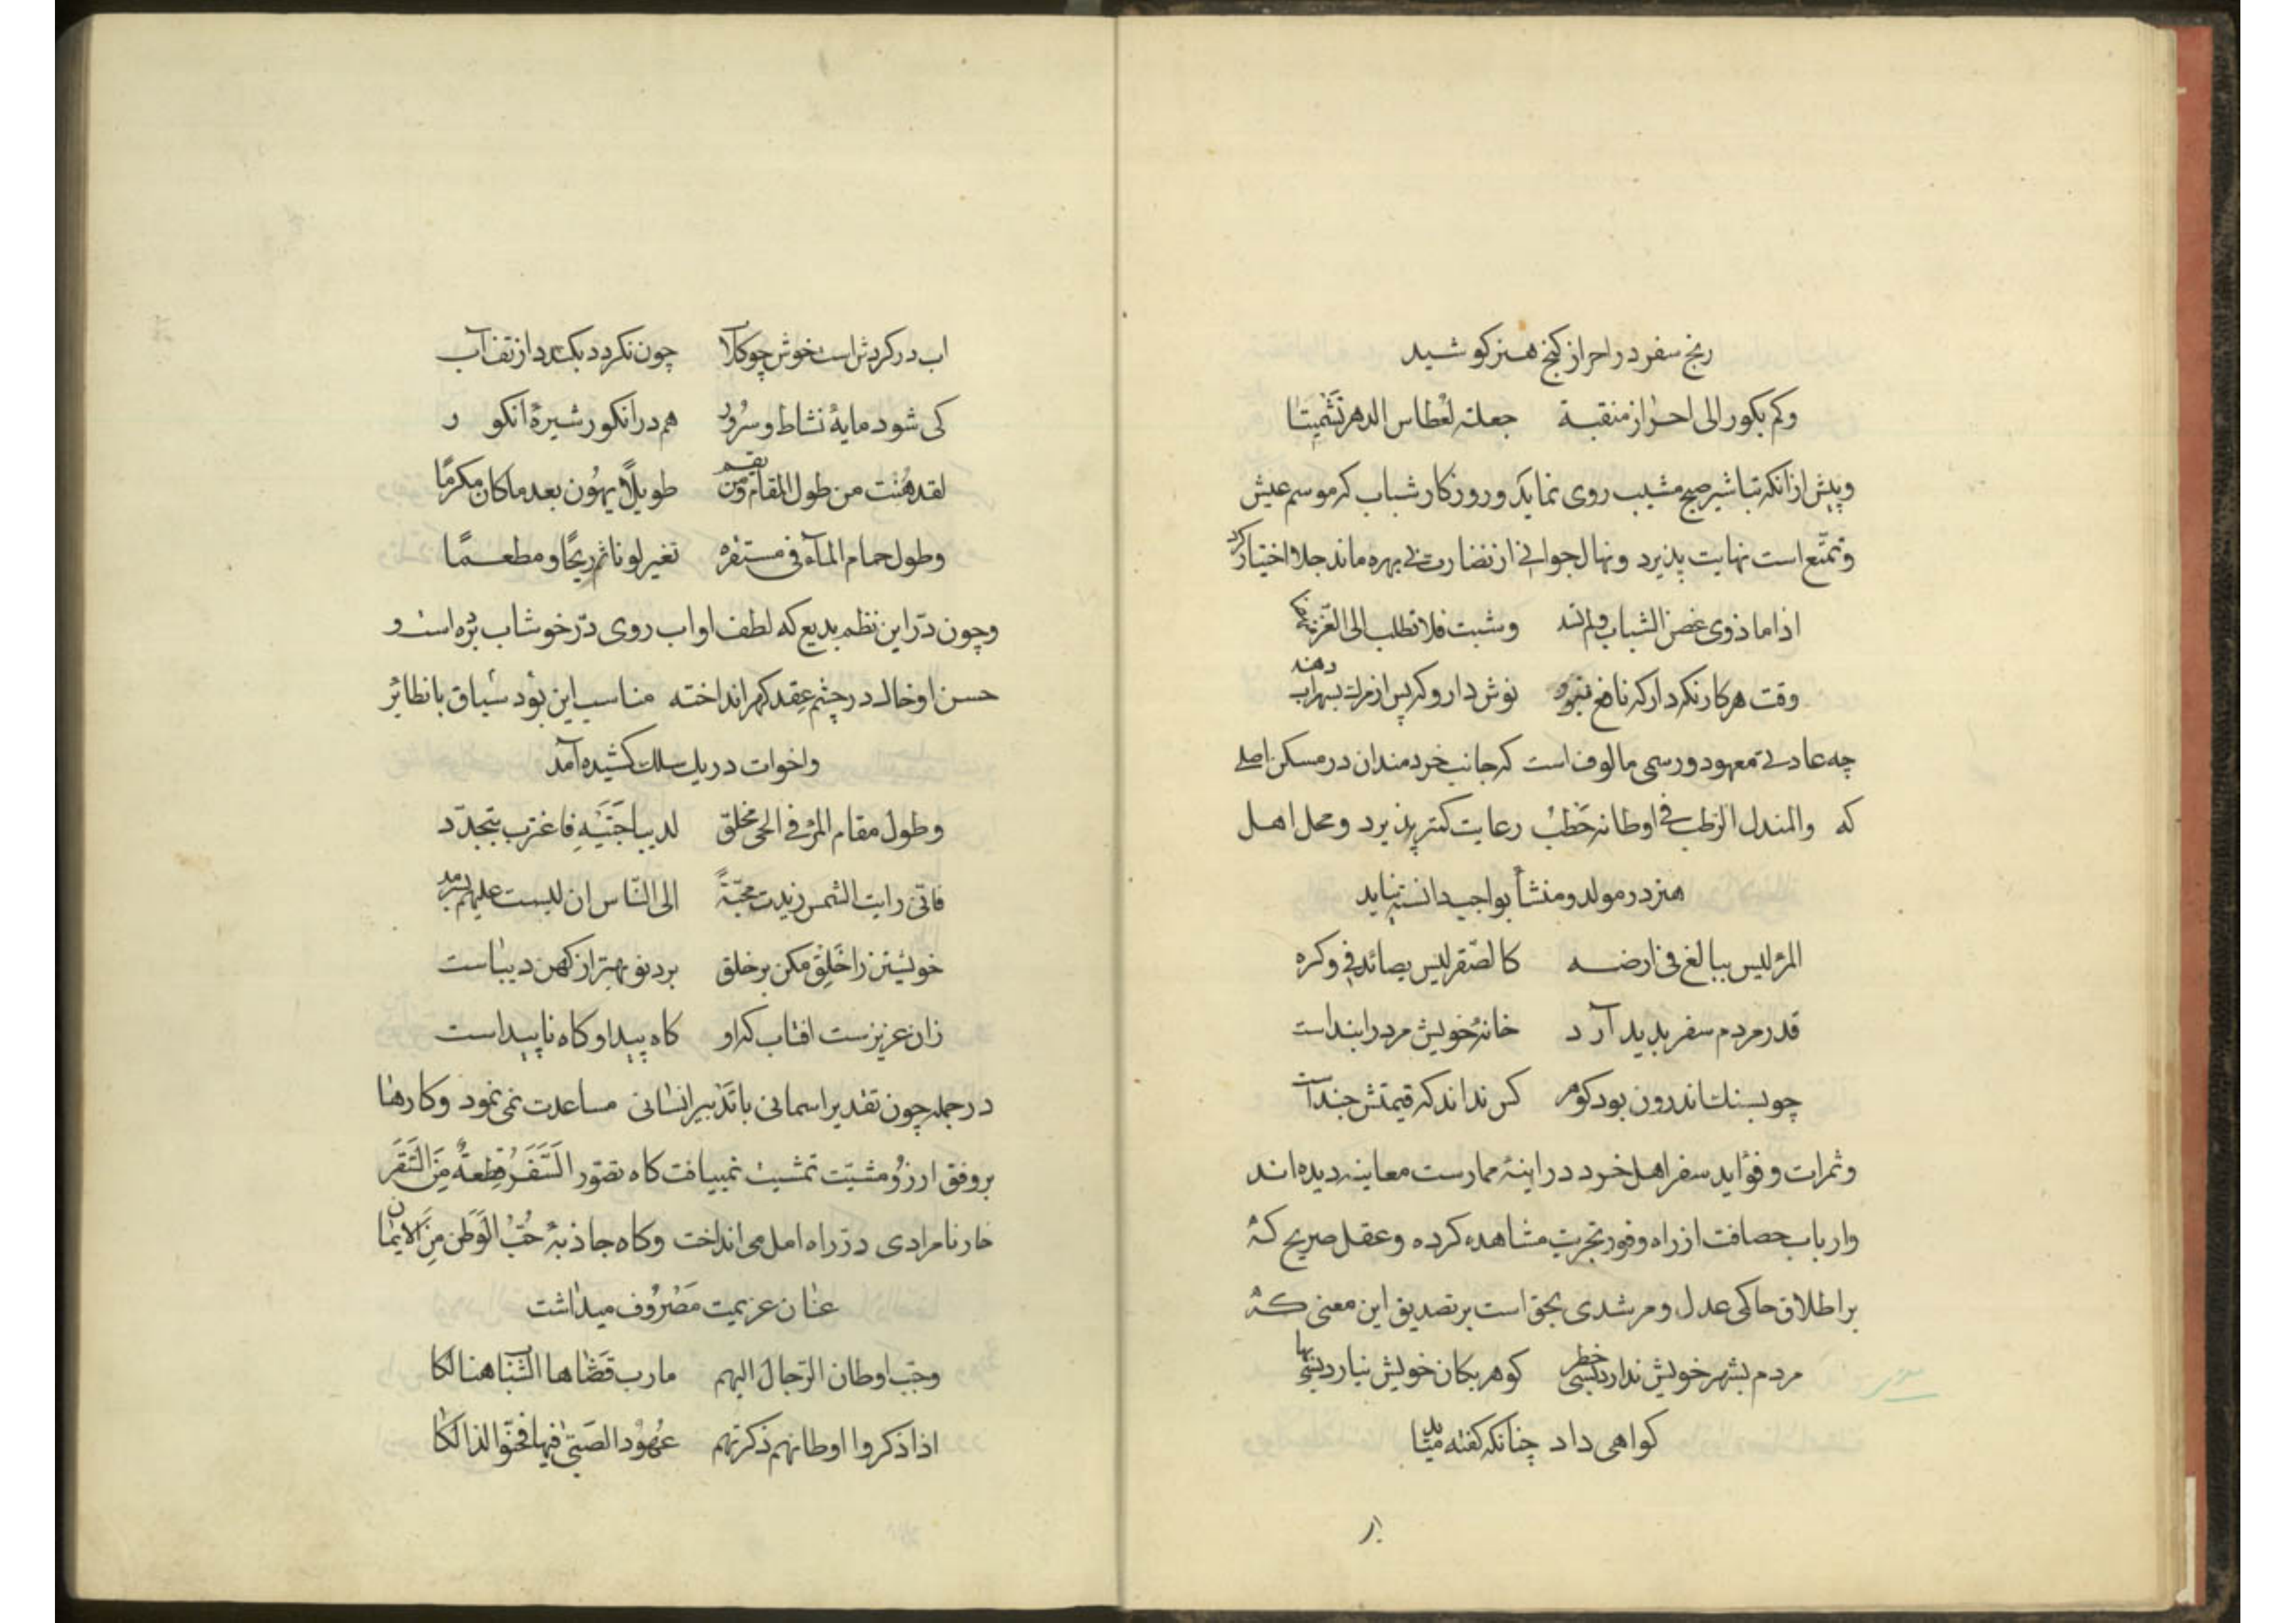 رنج سفر در احراز کنج هنر کوشید
وکم بکور الی احراز منقبة جعلته لعطاس الدهر تشمیتا
وپیش ازانکه تباشیر صبح مشیب روی نماید وروزکار شباب که موسم عیش
وتمتّع است نهایت پذیرد ونهال جوانی از نضارت بی بهره ماند جلا اختیار کرد
اذا ما ذوی غصن الشباب ولم تسد وشبت فلا تطلب الی العز
وقت هر کار نکه دار که نافع نبود نوش دارو که پس از مرك بسهراب دهند
چه عادتی معهود ورسمی مالوف است که جانب خردمندان در مسکن اصلی
که والمندل الرطب فی اوطانه حطب رعایت کمتر پذیرد ومحل اهل
هنر در مولد ومنشأ بواجب دانسته نیاید
المرٔ لیس ببالغ فی ارضه کالصّقر لیس بصائد فی وکره
قدر مردم سفر بدید آرد خانهٔ خویش مرد را بنداست
چو بسنك اندرون بود کوهر کس نداند که قیمتش جنداست
وثمرات وفوٰاید سفر اهل خرد در اینهٔ ممارست معاینه دیده اند
وارباب حصافت از راه وفور تجربت مشاهده کرده وعقل صریح که
بر اطلاق حاکی عدل ومرشدی بحق است بر تصدیق این معنی که
مردم بشهر خویش ندارد بسی خطر کوهر بکان خویش نیارد بسی بها
کواهی داد چنانکه کفته
اب در کردش است خوش چو کلاب چون نکردد بکندد از تف آب
کی شود مایهٔ نشاط وسرُور هم در انکور شیرهٔ انکور
لقد هُنْت من طول المقام ومن یقم طویلًا یهُون بعد ما کان مکرمًا
وطول حمام المآء فی مستقره تغیر لونا ثم ریحًا ومطعمًا
وچون دُرّ این نظم بدیع که لطف او اب روی دُرّ خوشاب برُه است و
حسن او خال در چشم عِقد کهر انداخته مناسب این بوُد سیاق با نظائر
واخوات در یك سلك کشیده آمد
وطول مقام المرٔ فی الحی مخلق لدیباجتیهِ فاغترب یتجدّد
فانّی رایت الشمس زیدت محبّةً الی النّاس ان لیست علیهم بسرمد
خویشتن را خَلِقْ مکن بر خلق برد نو بهتر از کهن دیباست
زان عزیزست افتاب که او کاه پیدا وکاه ناپیداست
در جمله چون تقدیر اسمانی با تدبیر انسانی مساعدت نمی نمود وکارها
بر وفق ارزو ومشیّت تمشیت نمییافت کاه تصّور السَّفَرُ قِطعةٌ مِنَ السَّقَر
خار نامرادی در راه امل می انداخت وکاه جاذبهٔ حُبُّ الْوَطَن مِنَ الایمان
عنان عزیمت مَصْرُوف میداشت
وحبّب اوطان الرّجال الیهم مارب قضّاها الشباب هنالکا
اذا ذکروا اوطانهم ذکرتهم عهُوْد الصّبیٰ فیها فحنّوا لذالکا